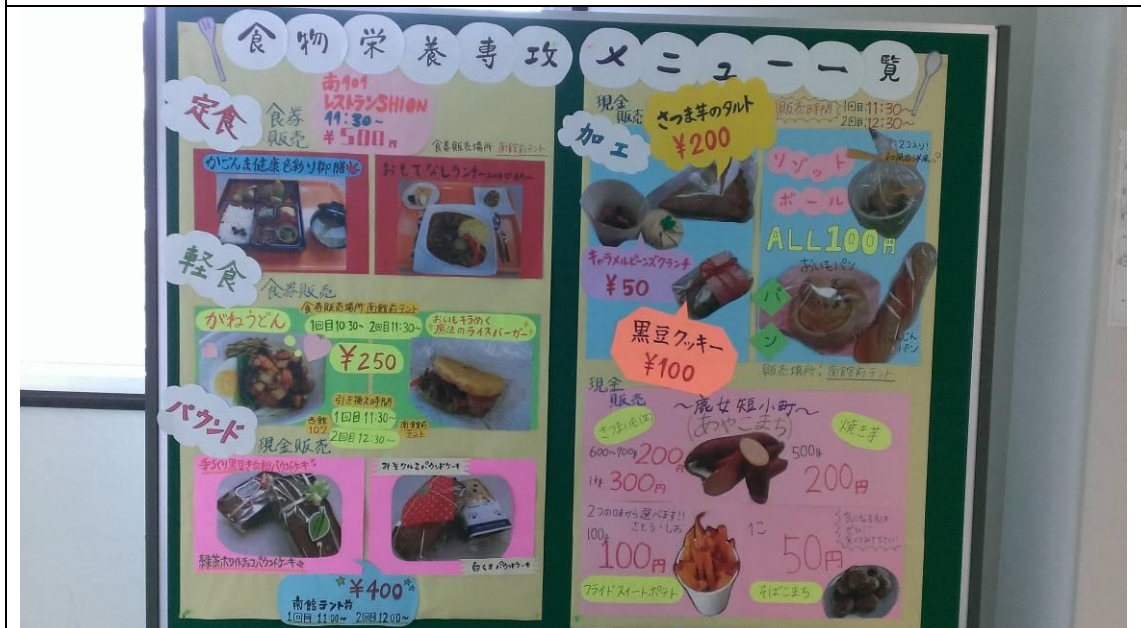 食物栄養専攻 メニュー一覧
定食
食券
販売
南101
レストランSHION
11:30~
¥500円
食券販売場所 南館前テント
かごんま健康色彩り御膳
おもてなしランチ
軽食
食券販売
食券販売場所 南館前テント
1回目10:30~ 2回目11:30~
がねうどん
おいもキラめく
魔法のライスバーガー
¥250
引き換え時間
1回目 11:30~
2回目 12:30~
西館
107
南館前
テント
パウンド
現金販売
手づくり黒豆きな粉パウンドケーキ
緑茶ホワイトチョコパウンドケーキ
みそクルミパウンドケーキ
白くまパウンドケーキ
¥400
南館テント前
1回目 11:00~ 2回目 12:00~
現金
販売
加工
さつま芋のタルト
¥200
販売時間
1回目:11:30~
2回目:12:30~
キャラメルビーンズクランチ
¥50
黒豆クッキー
¥100
リゾット
ボール
2コ入り!
ALL100円
パン
おいもパン
にんじん
パン
販売場所:南館前テント
現金
販売
~鹿女短小町~
(あやこまち)
さつまいも
600~900g 200円
1kg 300円
焼き芋
500g
200円
2つの味から選べます!!
さとう・しお
100g
100円
フライドスイートポテト
1コ
50円
そばこまち